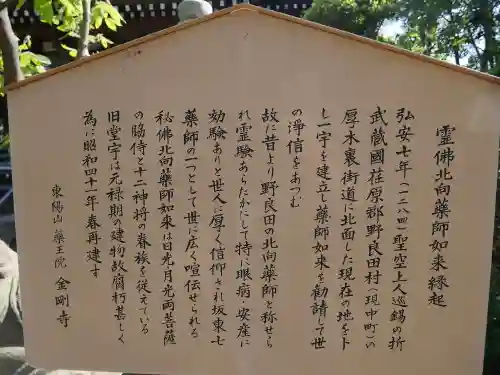 霊佛北向薬師如来縁起
弘安七年(一二八四)聖空上人巡錫の折
武蔵國荏原郡野良田村(現中町)の
厚木裏街道に北面した現在の地をト
し一宇を建立し薬師如来を勧請して世
の淨信をあつむ
故に昔より野良田の北向薬師と称せら
れ霊験あらたかにして特に眼病・安産に
効験ありと世人に厚く信仰され坂東七
薬師の一つとして世に広く喧伝せられる
秘佛北向薬師如来は日光月光両菩薩
の脇侍と十二神将の眷族を従えている
旧堂宇は元禄期の建物故腐朽甚しく
為に昭和四十一年春再建す
東陽山 薬王院 金剛寺